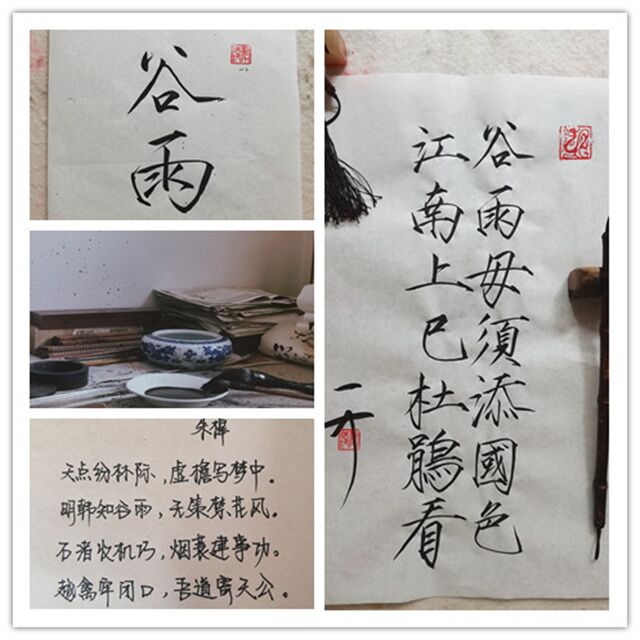 谷雨
朱槔
天点纷林际，虚檐写梦中。
明朝知谷雨，无策禁花风。
石渚收机巧，烟蓑建事功。
越禽牢闭口，吾道寄天公。
谷雨毋須添國色
江南上巳杜鵑看